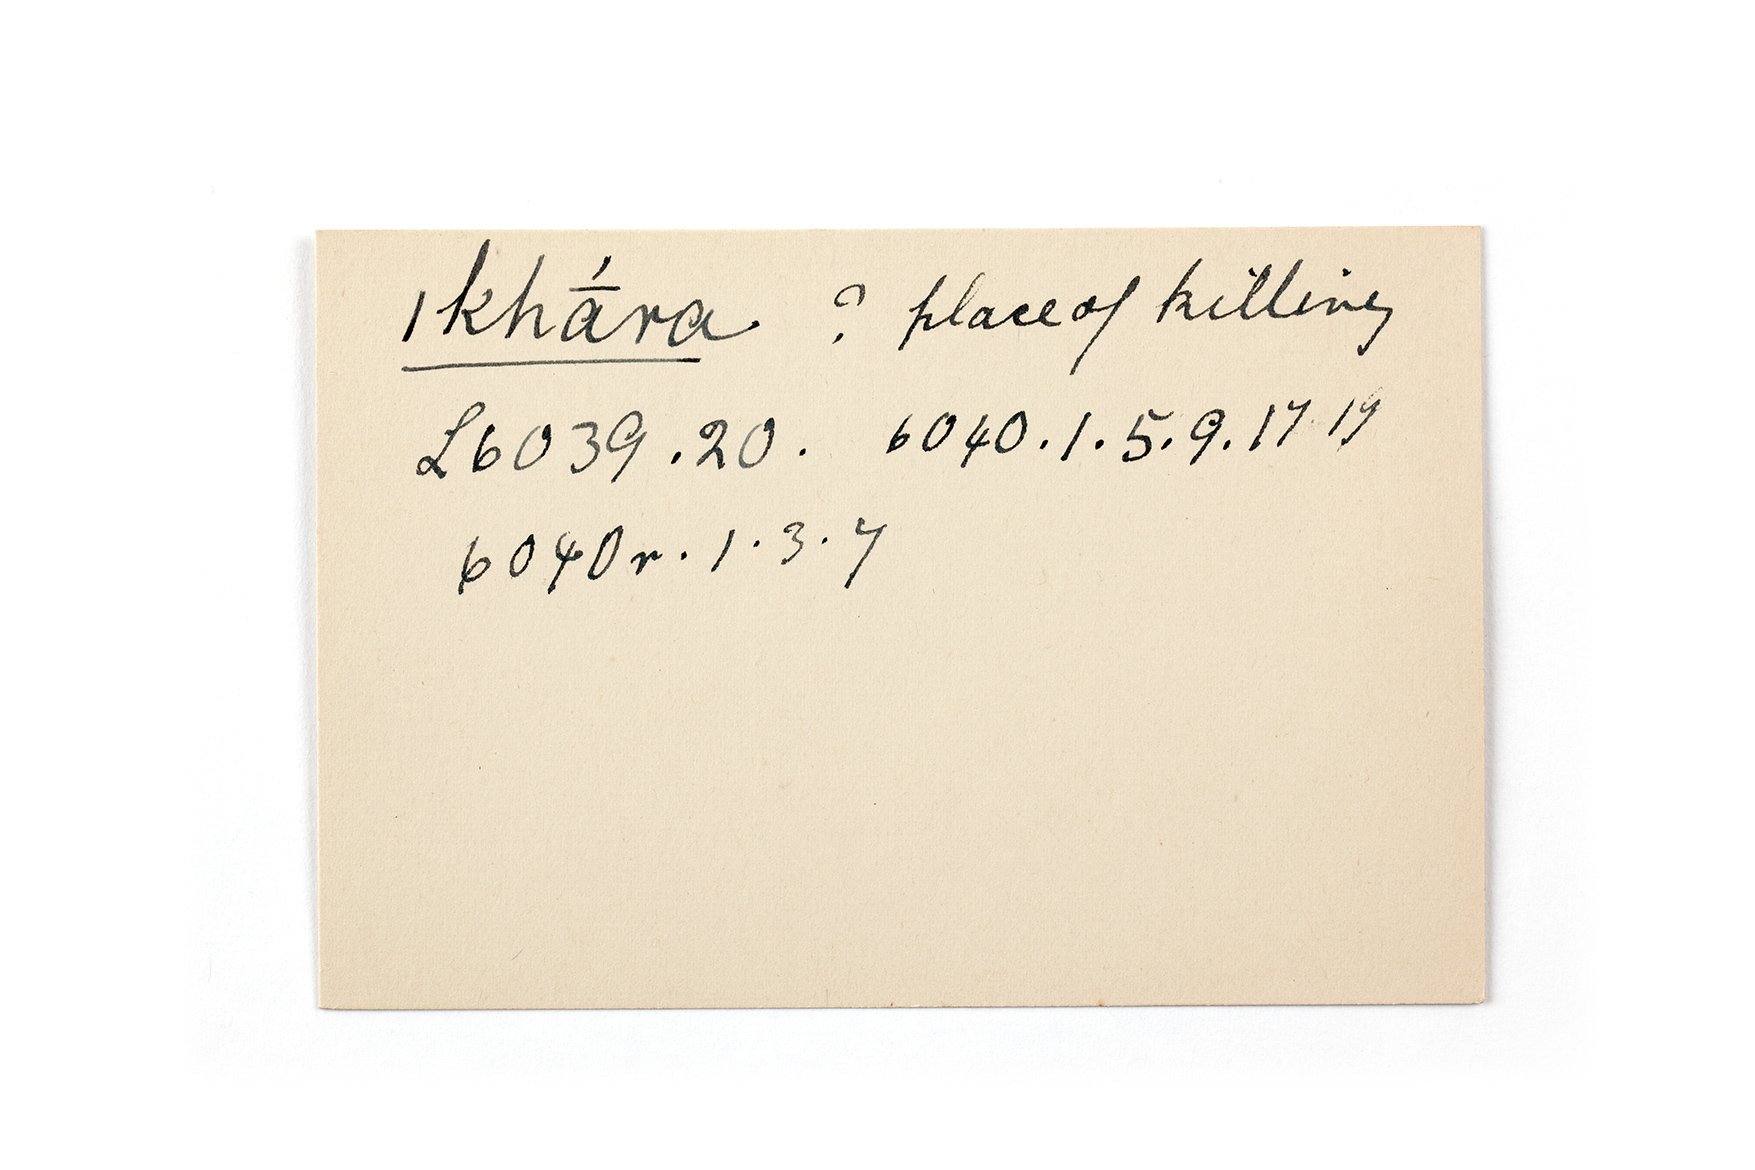 ı khā́ra. ? place of killing
L6039.20. 6040.1.5.9.17 19
6040r.1.3.7